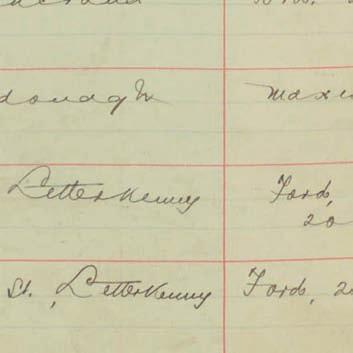 donagh Max
Letterkenny Ford,
20
St., Letterkenny Ford, 2